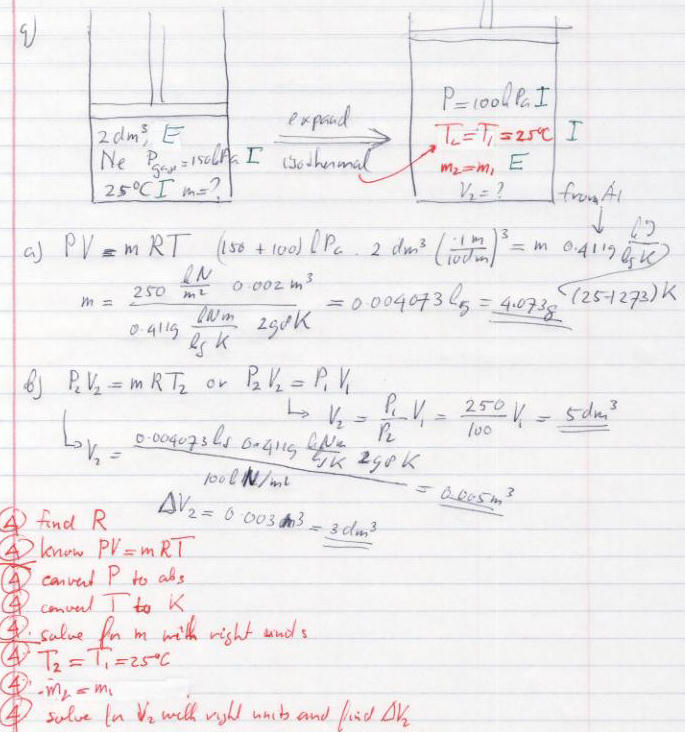 q)
2 dm³, E
Ne P gage = 150 kPa I
25°C I m = ?
expand
isothermal
P = 100 kPa I
T₂ = T₁ = 25°C I
m₂ = m₁ E
V₂ = ?
from A1
a) PV = m RT (150 + 100) kPa . 2 dm³ (1m/10dm)³ = m 0.4119 kJ/kg K
(25+273) K
m = 250 kN/m² 0.002 m³ / 0.4119 kNm/kg K 298 K = 0.004073 kg = 4.073g
b) P₂V₂ = m RT₂ or P₂V₂ = P₁V₁
V₂ = P₁/P₂ V₁ = 250/100 V₁ = 5 dm³
V₂ = 0.004073 kg 0.4119 kNm/kgK 298 K / 100 kN/m² = 0.005 m³
ΔV₂ = 0.003 m³ = 3 dm³
4 find R
4 know PV = m RT
4 convert P to abs
4 convert T to K
4. solve for m with right units
4 T₂ = T₁ = 25°C
4. m₂ = m₁
4 solve for V₂ with right units and find ΔV₂